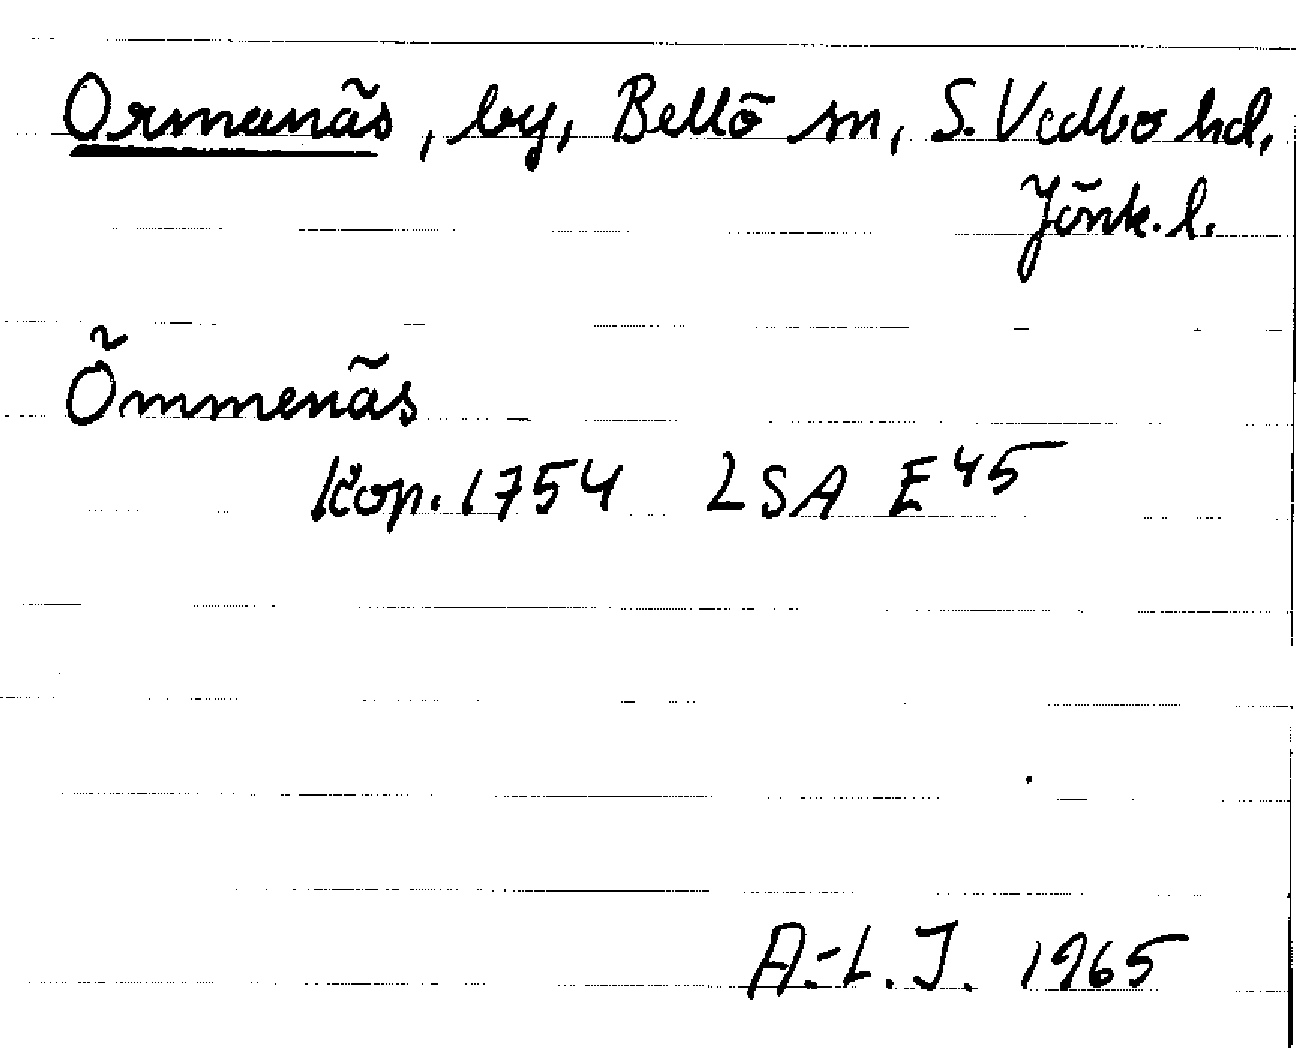 Ormanäs, by, Bellö sn, S. Vedbo hd,
Jönk. l.
Ömmenäs
Kop. 1754 LSA E 45
A.-L. J. 1965